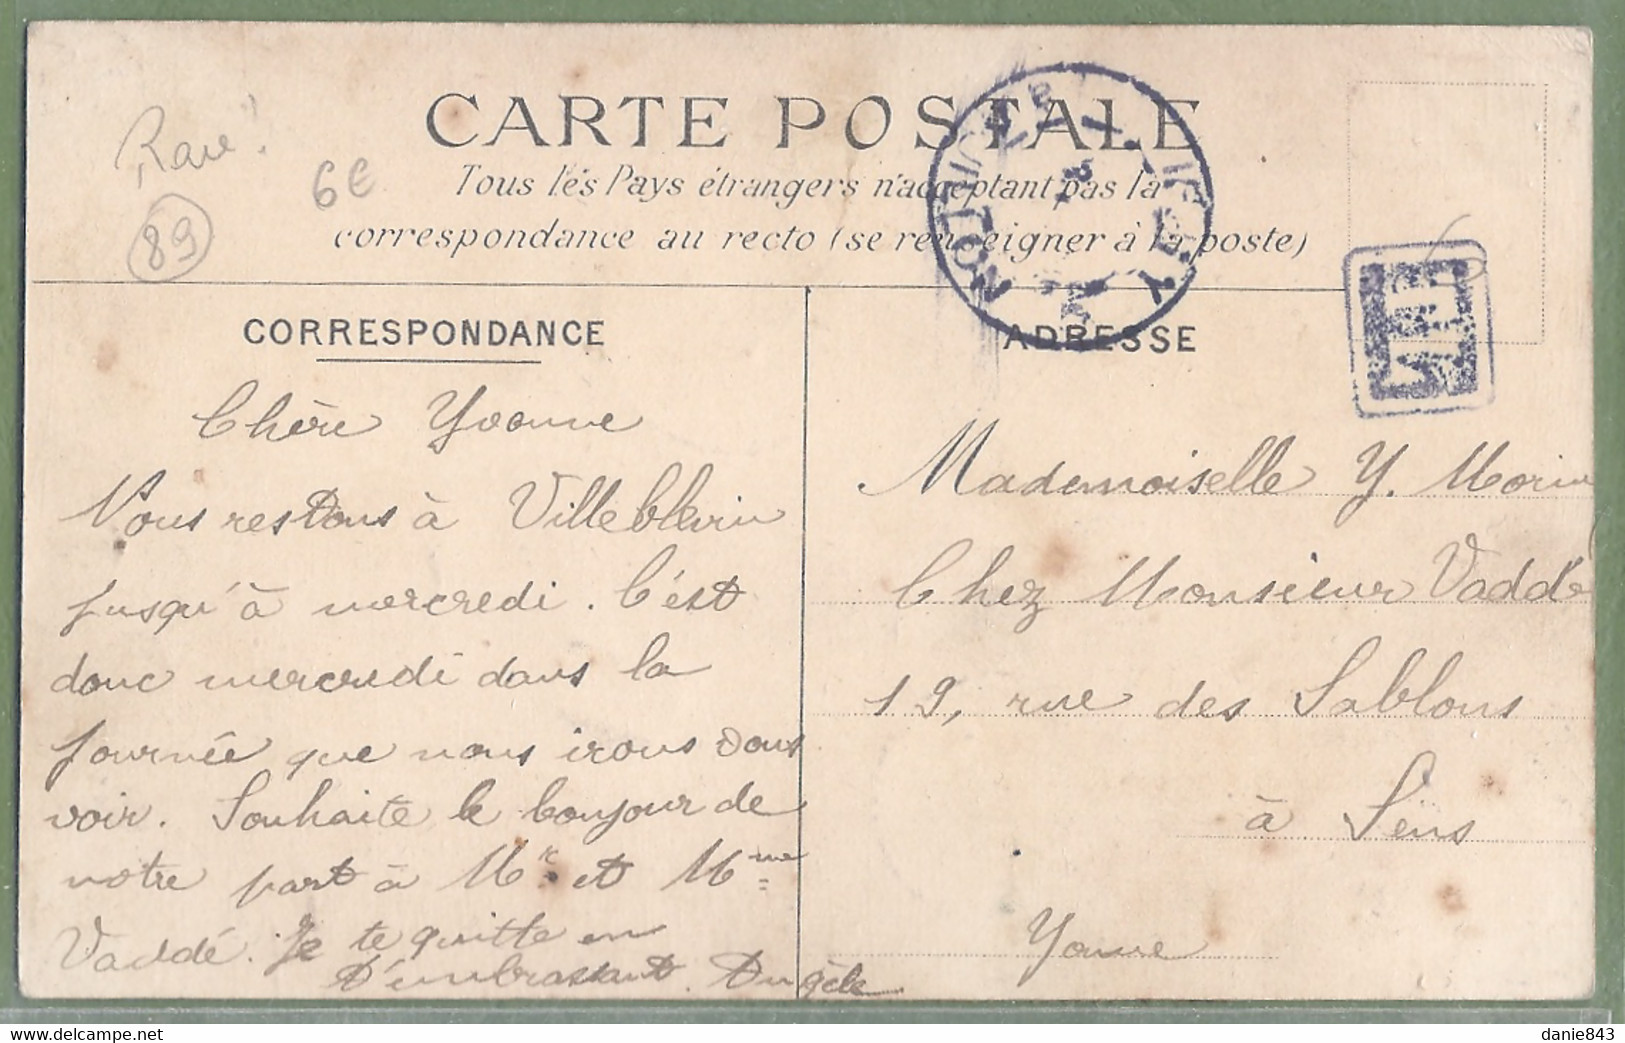 Rare!
89
6€
CARTE POSTALE
Tous les Pays étrangers n'acceptent pas la
correspondance au recto (se renseigner à la poste)
CORRESPONDANCE
ADRESSE
Chère Yvonne
Nous restons à Villeblevin
jusqu'à mercredi. C'est
donc mercredi dans la
journée que nous irons vous
voir. Souhaite le bonjour de
notre part à Mr et Mme
Vaddé. Je te quitte en
t'embrassant. Angèle
Mademoiselle Y. Morin
Chez Monsieur Vaddé
19, rue des Sablons
à Sens
Yonne
delcampe.net
danie843